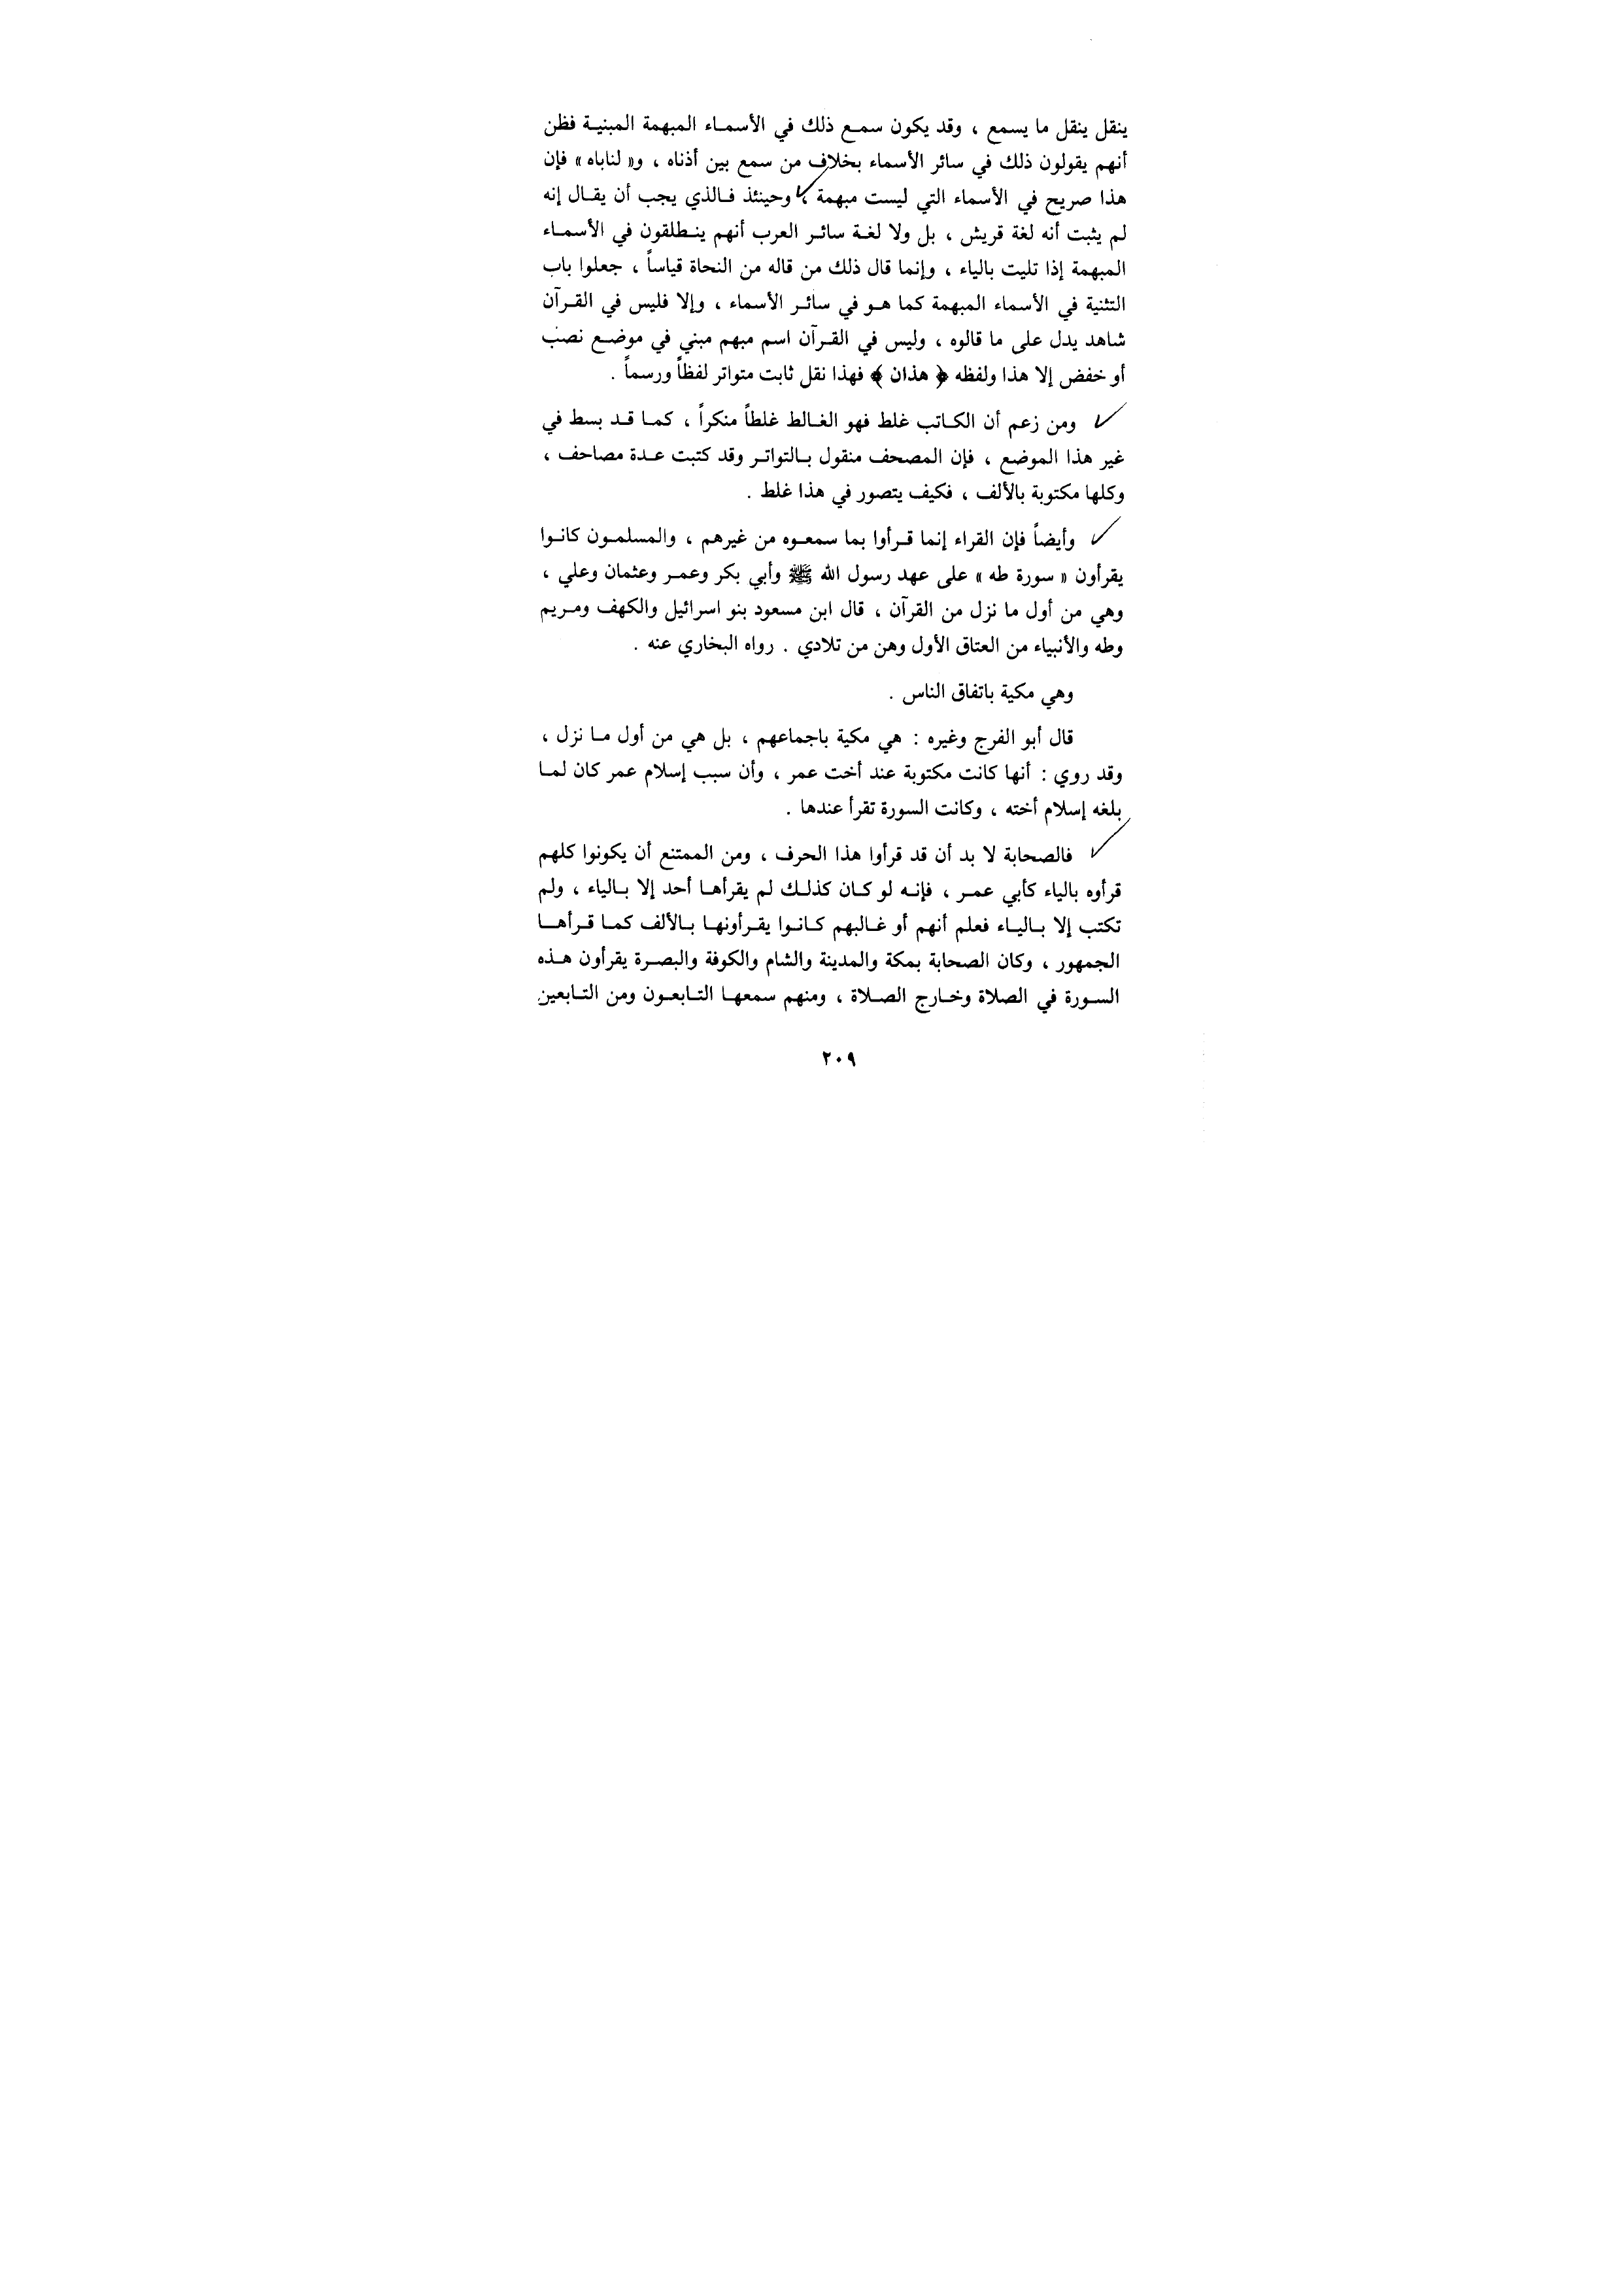 ينقل ينقل ما يسمع ، وقد يكون سمع ذلك في الأسماء المبهمة المبنية فظن
أنهم يقولون ذلك في سائر الأسماء بخلاف من سمع بين أذناه ، و« لناباه » فإن
هذا صريح في الأسماء التي ليست مبهمة ، وحينئذ فالذي يجب أن يقال إنه
لم يثبت أنه لغة قريش ، بل ولا لغة سائر العرب أنهم ينطلقون في الأسماء
المبهمة إذا تليت بالياء ، وإنما قال ذلك من قاله من النحاة قياساً ، جعلوا باب
التثنية في الأسماء المبهمة كما هو في سائر الأسماء ، وإلا فليس في القرآن
شاهد يدل على ما قالوه ، وليس في القرآن اسم مبهم مبني في موضع نصب
أو خفض إلا هذا ولفظه ﴿ هذان ﴾ فهذا نقل ثابت متواتر لفظاً ورسماً .
ومن زعم أن الكاتب غلط فهو الغالط غلطاً منكراً ، كما قد بسط في
غير هذا الموضع ، فإن المصحف منقول بالتواتر وقد كتبت عدة مصاحف ،
وكلها مكتوبة بالألف ، فكيف يتصور في هذا غلط .
وأيضاً فإن القراء إنما قرأوا بما سمعوه من غيرهم ، والمسلمون كانوا
يقرأون « سورة طه » على عهد رسول الله ﷺ وأبي بكر وعمر وعثمان وعلي ،
وهي من أول ما نزل من القرآن ، قال ابن مسعود بنو اسرائيل والكهف ومريم
وطه والأنبياء من العتاق الأول وهن من تلادي . رواه البخاري عنه .
وهي مكية باتفاق الناس .
قال أبو الفرج وغيره : هي مكية باجماعهم ، بل هي من أول ما نزل ،
وقد روي : أنها كانت مكتوبة عند أخت عمر ، وأن سبب إسلام عمر كان لما
بلغه إسلام أخته ، وكانت السورة تقرأ عندها .
فالصحابة لا بد أن قد قرأوا هذا الحرف ، ومن الممتنع أن يكونوا كلهم
قرأوه بالياء كأبي عمر ، فإنه لو كان كذلك لم يقرأها أحد إلا بالياء ، ولم
تكتب إلا بالياء فعلم أنهم أو غالبهم كانوا يقرأونها بالألف كما قرأها
الجمهور ، وكان الصحابة بمكة والمدينة والشام والكوفة والبصرة يقرأون هذه
السورة في الصلاة وخارج الصلاة ، ومنهم سمعها التابعون ومن التابعين
٢٠٩